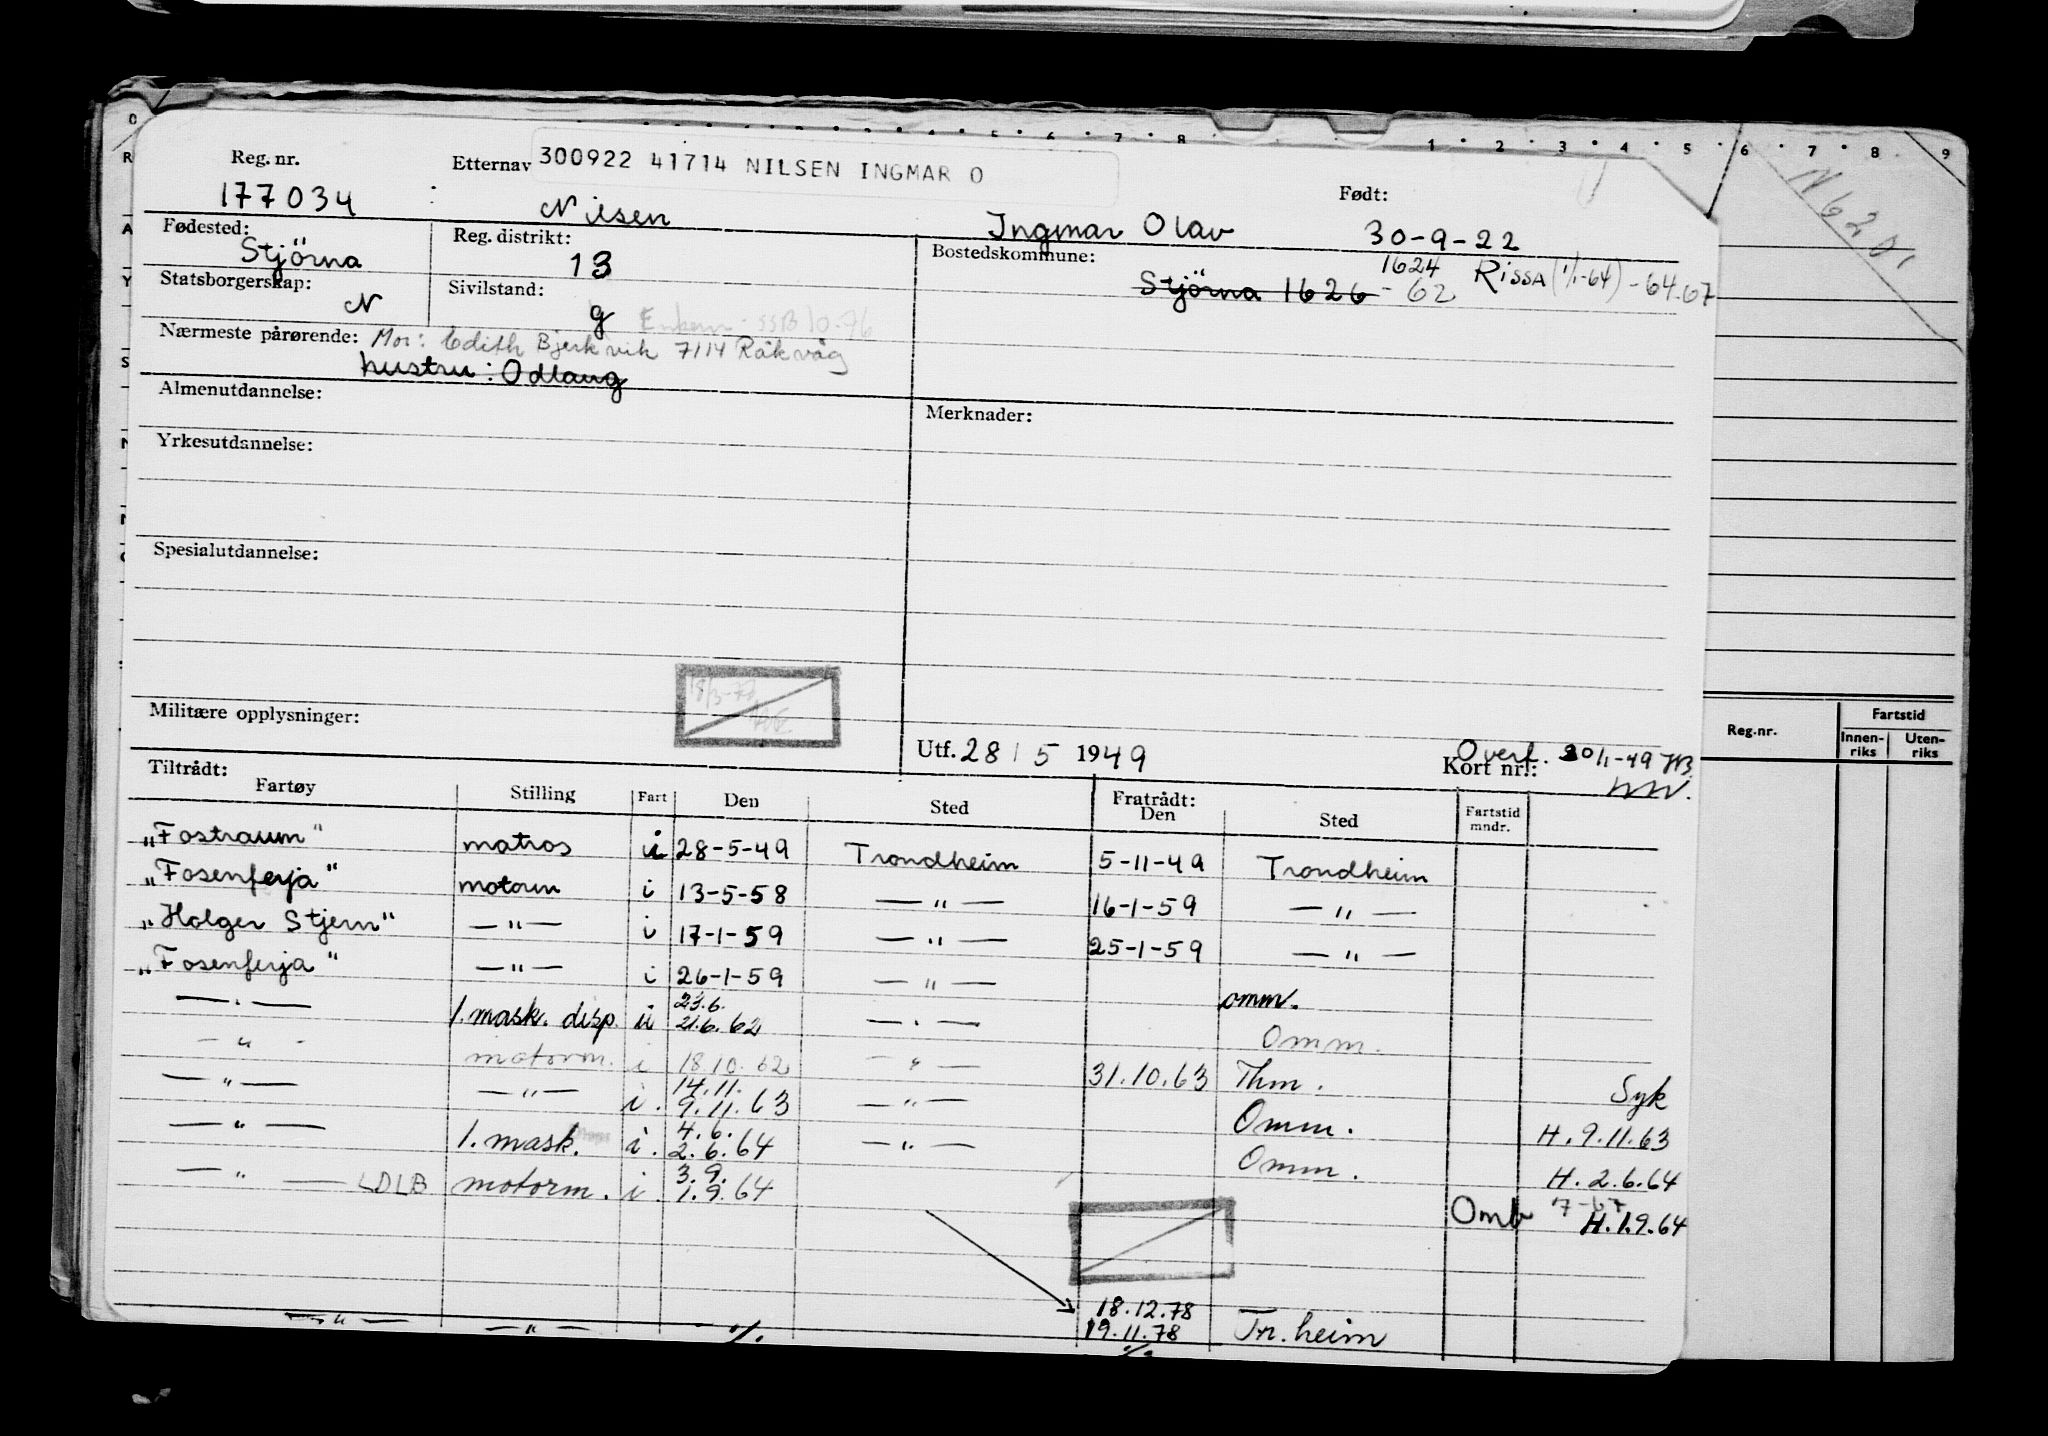 0 5 6 7 8 1 2 3 4 5 6 7 8 9
Reg. nr. Etternav 300922 41714 NILSEN INGMAR O Født:
177034 Nilsen Ingmar Olav 30-9-22
Fødested: Stjörna Reg. distrikt: 13 Bostedskommune: Stjörna 1626 - 62 1624 Rissa (1/1-64) - 64.67
Statsborgerskap: N Sivilstand: g
Nærmeste pårørende: Mor: Edith Bjerkvik 7114 Råkvåg
hustru: Odlaug
Almenutdannelse: Merknader:
Yrkesutdannelse:
Spesialutdannelse:
Militære opplysninger:
Utf. 28 / 5 1949 Kort nr.: Overf.
Reg.nr. Fartstid
Innen-riks Uten-riks
Tiltrådt: Fratrådt:
Fartøy Stilling Fart Den Sted Den Sted Fartstid mndr.
"Fostraum" matros i 28-5-49 Trondheim 5-11-49 Trondheim
"Fosenferja" motorm i 13-5-58 — " — 16-1-59 — " —
"Holger Stjern" — " — i 17-1-59 — " — 25-1-59 — " —
"Fosenferja" — " — i 26-1-59 — " — omm.
— " — 1. mask. disp. ii 23.6. 21.6.62 — " — Omm.
— " — motorm. i 18.10.62 — " — 31.10.63 Thm. Syk
— " — — " — i. 14.11. 9.11.63 — " — Omm. H. 9.11.63
— " — 1. mask. i. 4.6. 2.6.64 — " — Omm. H. 2.6.64
— " — LDLB motorm. i. 3.9. 1.9.64 Omb 7-67 H. 1.9.64
18.12.78
— " — — " — - ./. 19.11.78 ./. Tr.heim